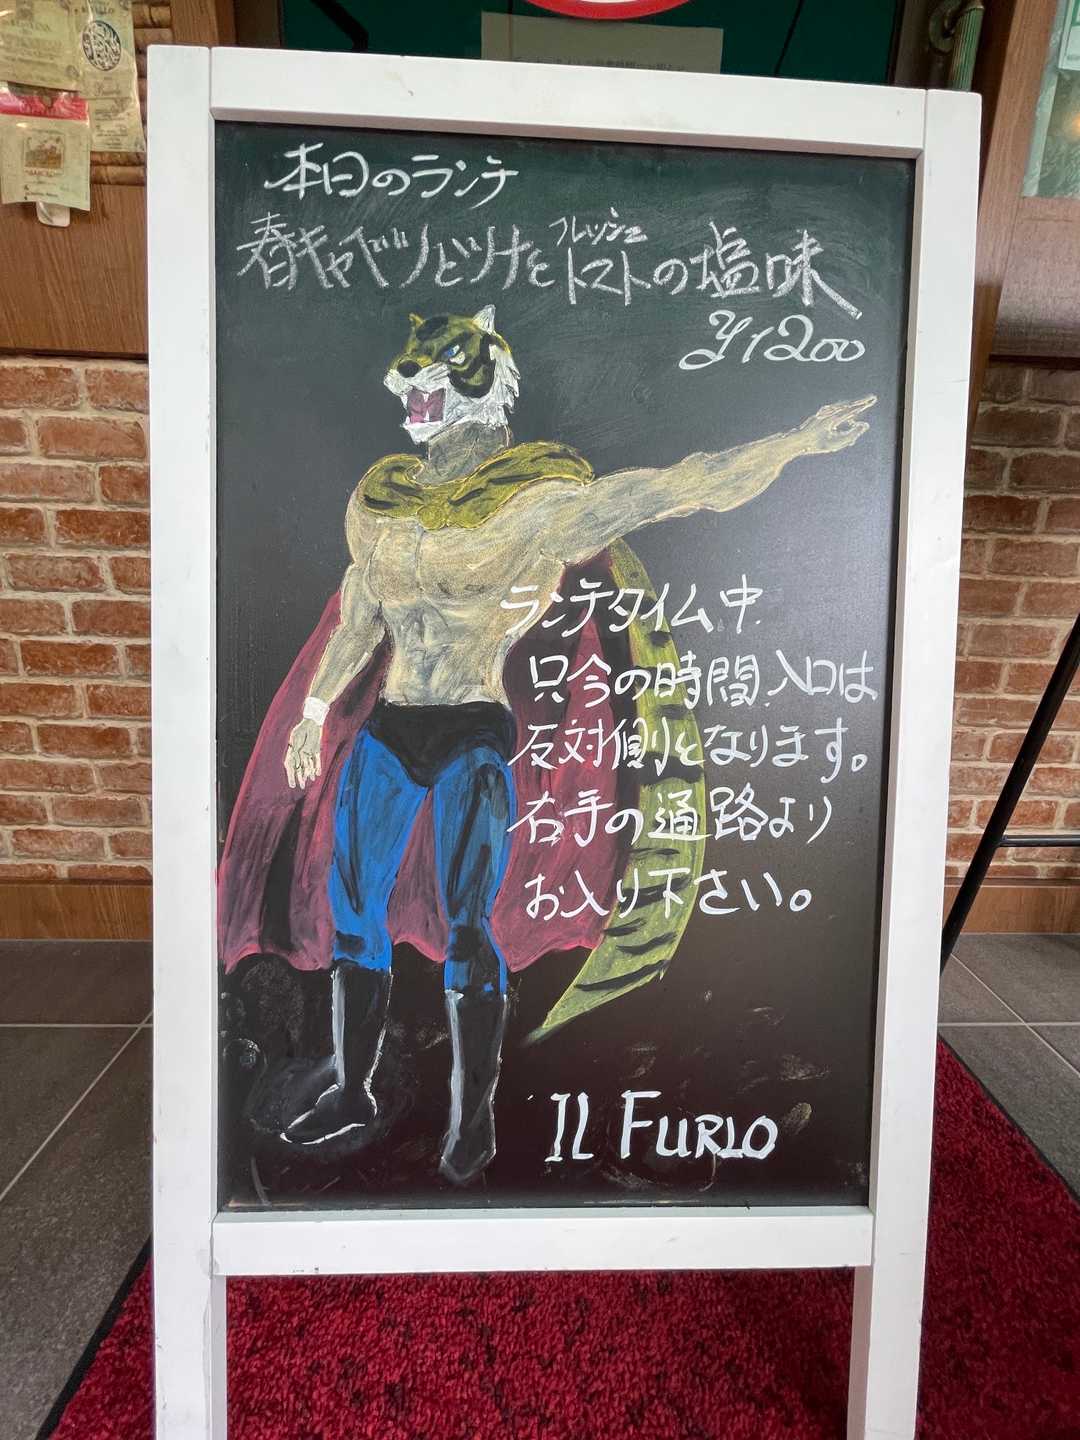 本日のランチ
春キャベツとツナとフレッシュトマトの塩味
¥1200
ランチタイム中
只今の時間、入口は
反対側となります。
右手の通路より
お入り下さい。
IL FURLO